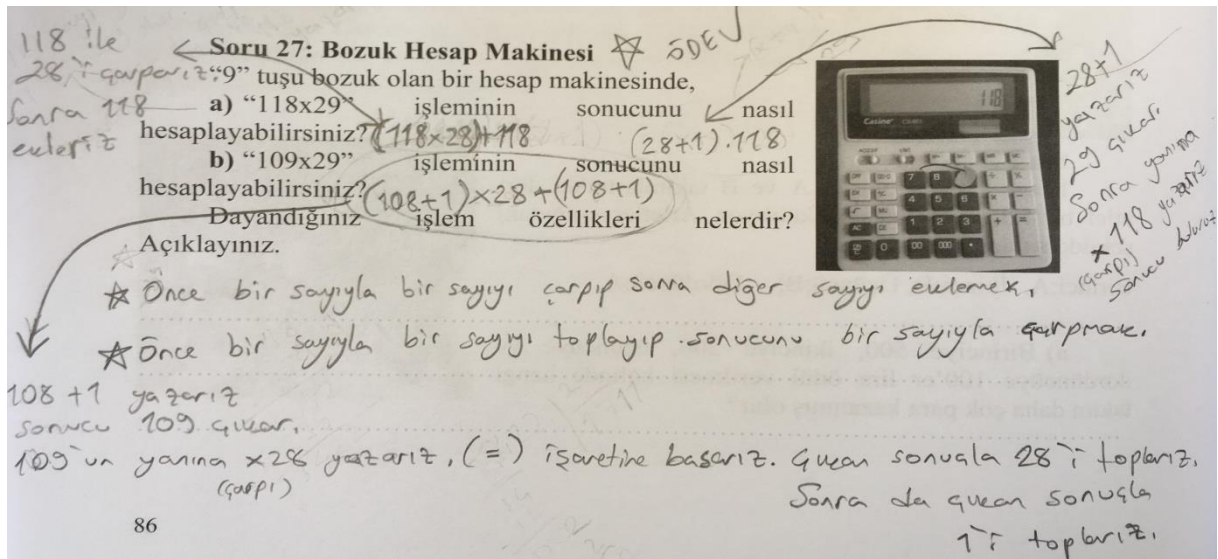 118 ile
28'i çarparız.
Sonra 118
ekleriz
Soru 27: Bozuk Hesap Makinesi ☆ ÖDEV
"9" tuşu bozuk olan bir hesap makinesinde,
a) "118x29" işleminin sonucunu nasıl
hesaplayabilirsiniz? (118x28)+118 (28+1).118
b) "109x29" işleminin sonucunu nasıl
hesaplayabilirsiniz? (108+1)x28+(108+1)
Dayandığınız işlem özellikleri nelerdir?
Açıklayınız.
28+1
yazarız
29 çıkar.
Sonra yanına
x118 yazarız
(çarpı)
sonucu buluruz
118
Casine
7 8
4 5 6
1 2 3
0 00 000
☆ Önce bir sayıyla bir sayıyı çarpıp sonra diğer sayıyı eklemek.
☆ Önce bir sayıyla bir sayıyı toplayıp sonucunu bir sayıyla çarpmak.
108 +1 yazarız
sonucu 109 çıkar.
109'un yanına x28 yazarız, (=) işaretine basarız. Çıkan sonuçla 28'i toplarız.
(çarpı)
Sonra da çıkan sonuçla
1'i toplarız.
86